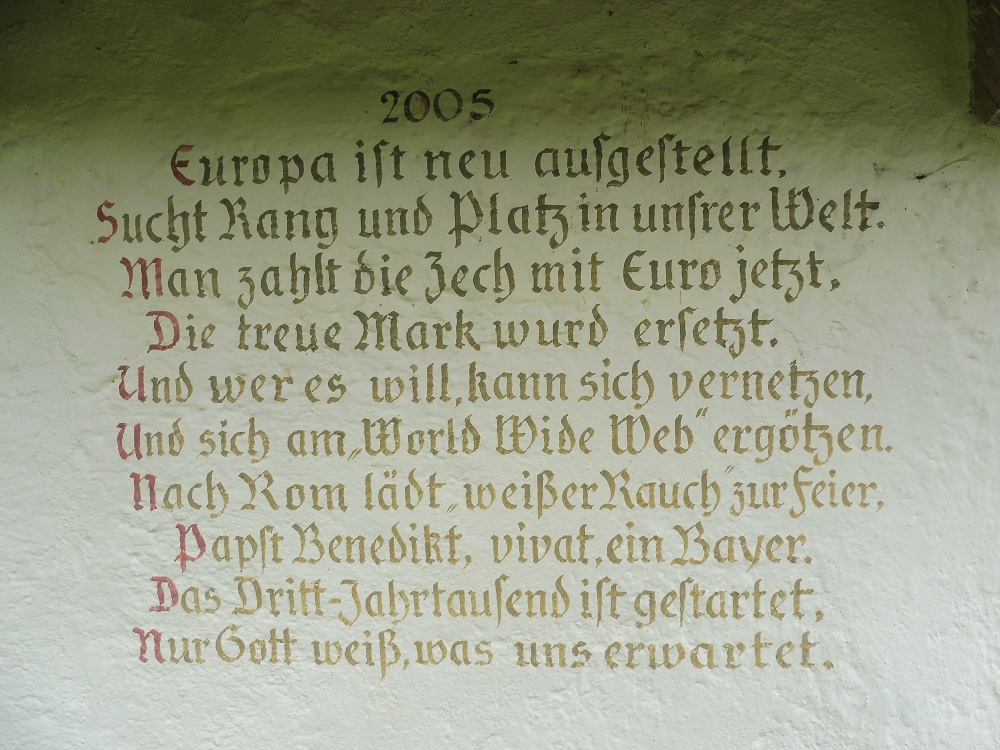 2005
Europa ist neu ausgestellt,
Sucht Rang und Platz in unsrer Welt.
Man zahlt die Zech mit Euro jetzt,
Die treue Mark wurd ersetzt.
Und wer es will, kann sich vernetzen,
Und sich am „World Wide Web" ergötzen.
Nach Rom lädt „weißer Rauch" zur Feier,
Papst Benedikt, vivat, ein Bayer.
Das Dritt-Jahrtausend ist gestartet,
Nur Gott weiß, was uns erwartet.